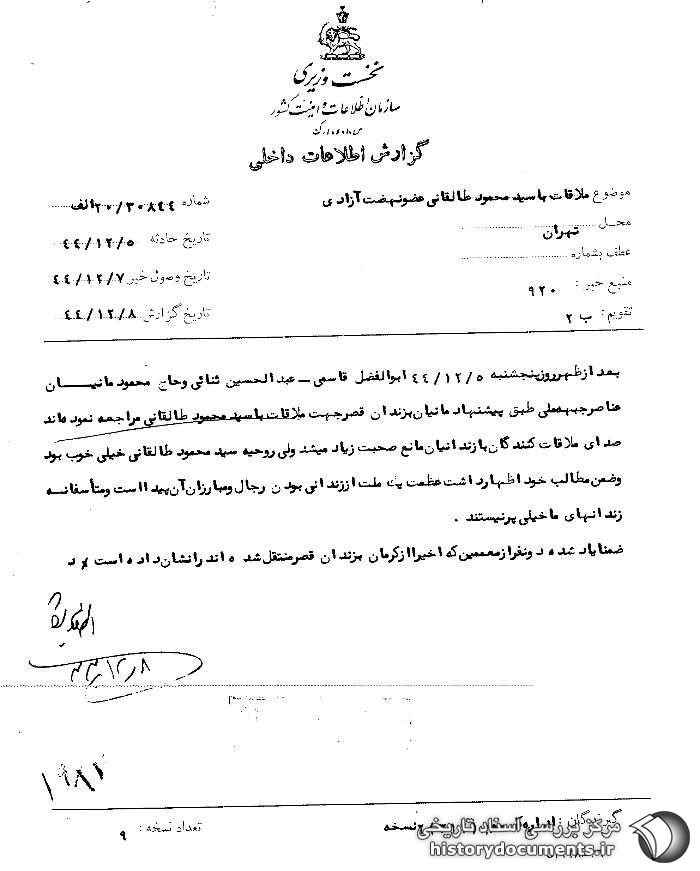 نخست وزیری
سازمان اطلاعات و امنیت کشور
س.ا.و.ا.ک
گزارش اطلاعات داخلی
موضوع ملاقات با سید محمود طالقانی عضو نهضت آزادی
شماره ۲۰/۳۰۸۴۴الف
محل تهران
تاریخ حادثه ۴۴/۱۲/۵
عطف بشماره
تاریخ وصول خبر ۴۴/۱۲/۷
منبع خبر : ۹۲۰
تاریخ گزارش ۴۴/۱۲/۸
تقویم : ب ۲
بعد از ظهر روز پنجشنبه ۴۴/۱۲/۵ ابوالفضل قاسمی – عبدالحسین ثنائی و حاج محمود مانیان
عناصر جبهه ملی طبق پیشنهاد مانیان بزندان قصر جهت ملاقات با سید محمود طالقانی مراجعه نموده اند
صدای ملاقات کنندگان با زندانیان مانع صحبت زیاد میشد ولی روحیه سید محمود طالقانی خیلی خوب بود
و ضمن مطالب خود اظهار داشت عظمت یک ملت از زندانی بودن رجال و مبارزان آن پیدا است و متأسفانه
زندانهای ما خیلی پر نیستند .
ضمنا یاد شده دو نفر از معممین که اخیرا از کرمان بزندان قصر منتقل شده اند را نشان داده است
۱۹۸۲
گیرندگان
نسخه
تعداد نسخه : ۹
مرکز بررسی اسناد تاریخی
historydocuments.ir